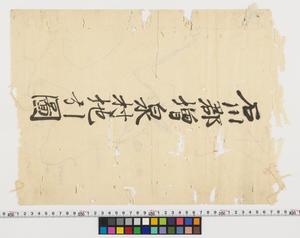 石川郡増泉村地引圖